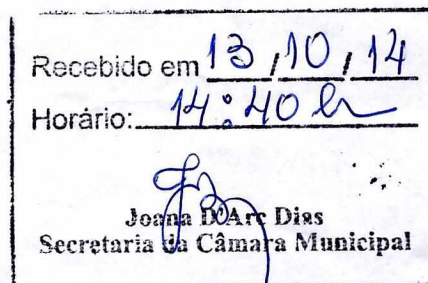 Recebido em 13 / 10 / 14
Horário: 14:40 h
Joana D'Arc Dias
Secretaria da Câmara Municipal